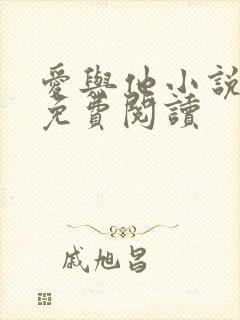 愛與他小説
免費閱讀
戚旭昌